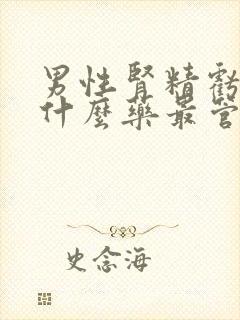 男性腎精虧
什麼藥最管
史念海